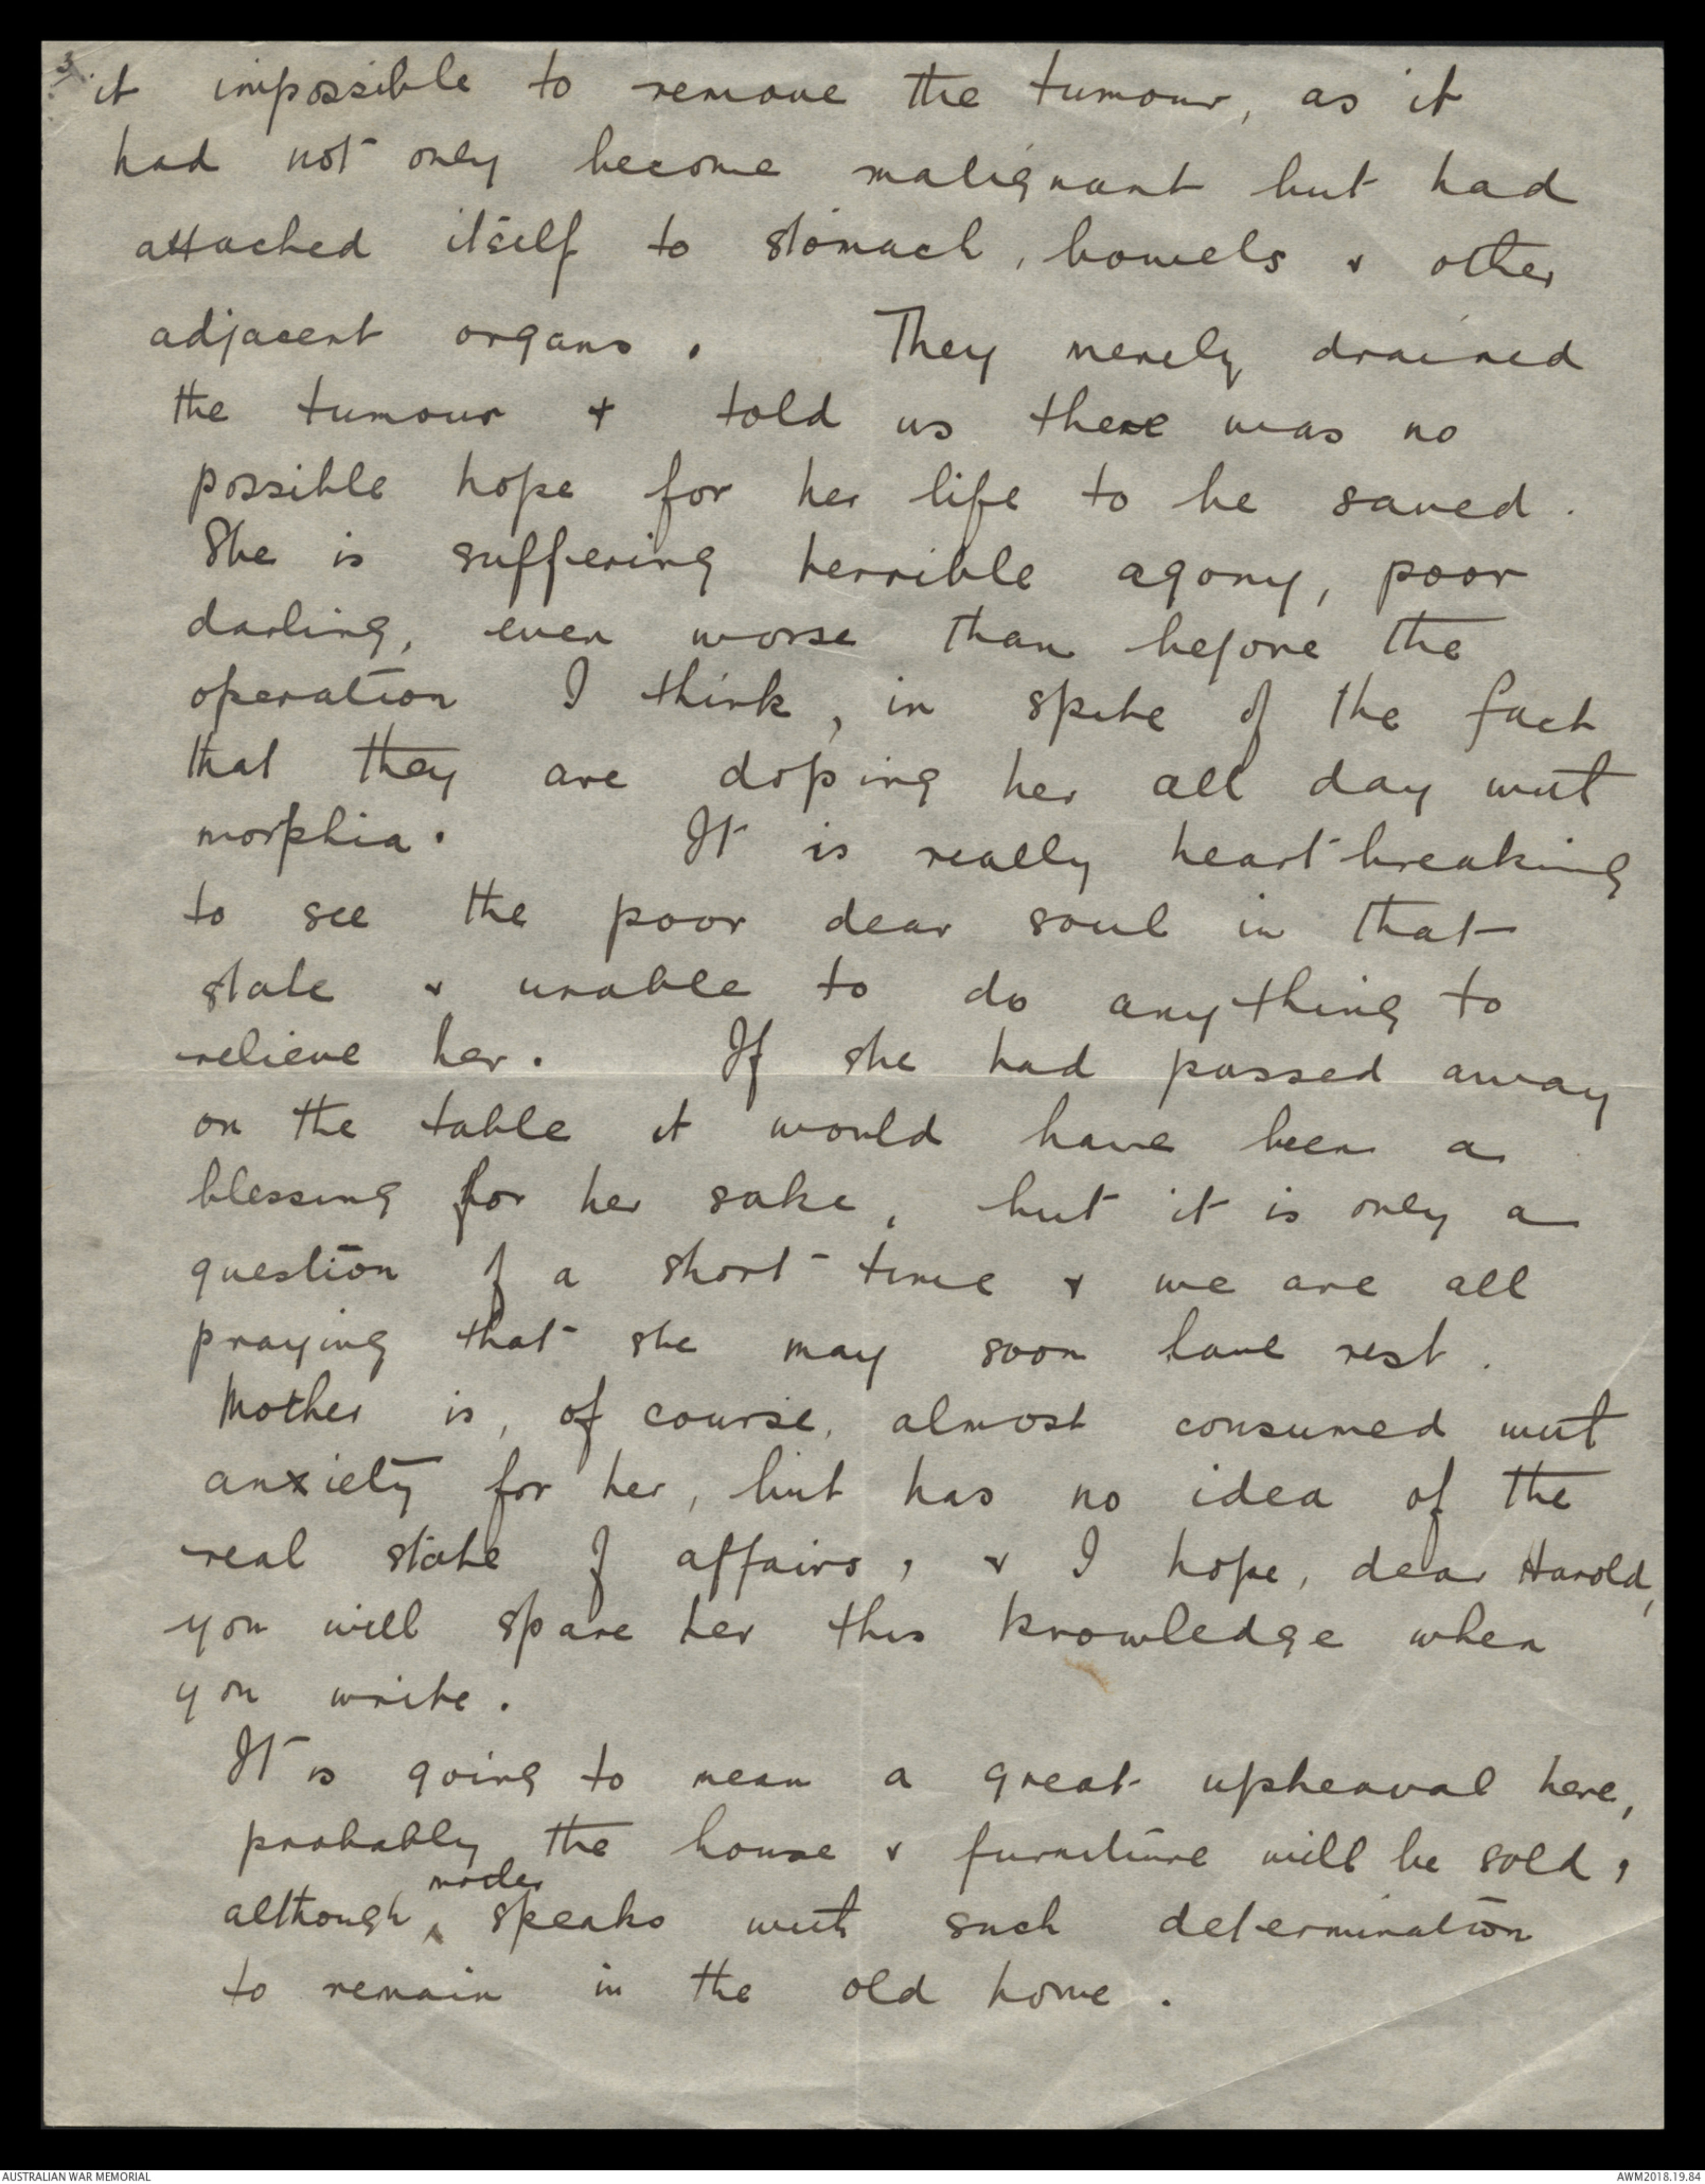 3.
it impossible to remove the tumour, as it
had not only become malignant but had
attached itself to stomach, bowels & other
adjacent organs. They merely drained
the tumour & told us there was no
possible hope for her life to be saved.
She is suffering herrible agony, poor
darling, even worse than before the
operation I think, in spite of the fact
that they are doping her all day with
morphia. It is really heart breaking
to see the poor dear soul in that
state & unable to do anything to
relieve her. If she had passed away
on the table it would have been a
blessing for her sake, but it is only a
question of a short time & we are all
praying that she may soon have rest.
Mother is, of course, almost consumed with
anxiety for her, but has no idea of the
real state of affairs, & I hope, dear Harold,
you will spare her this knowledge when
you write.
It is going to mean a great upheaval here,
probably the house & furniture will be sold,
although mater speaks with such determination
to remain in the old home.
AUSTRALIAN WAR MEMORIAL
AWM2018.19.84